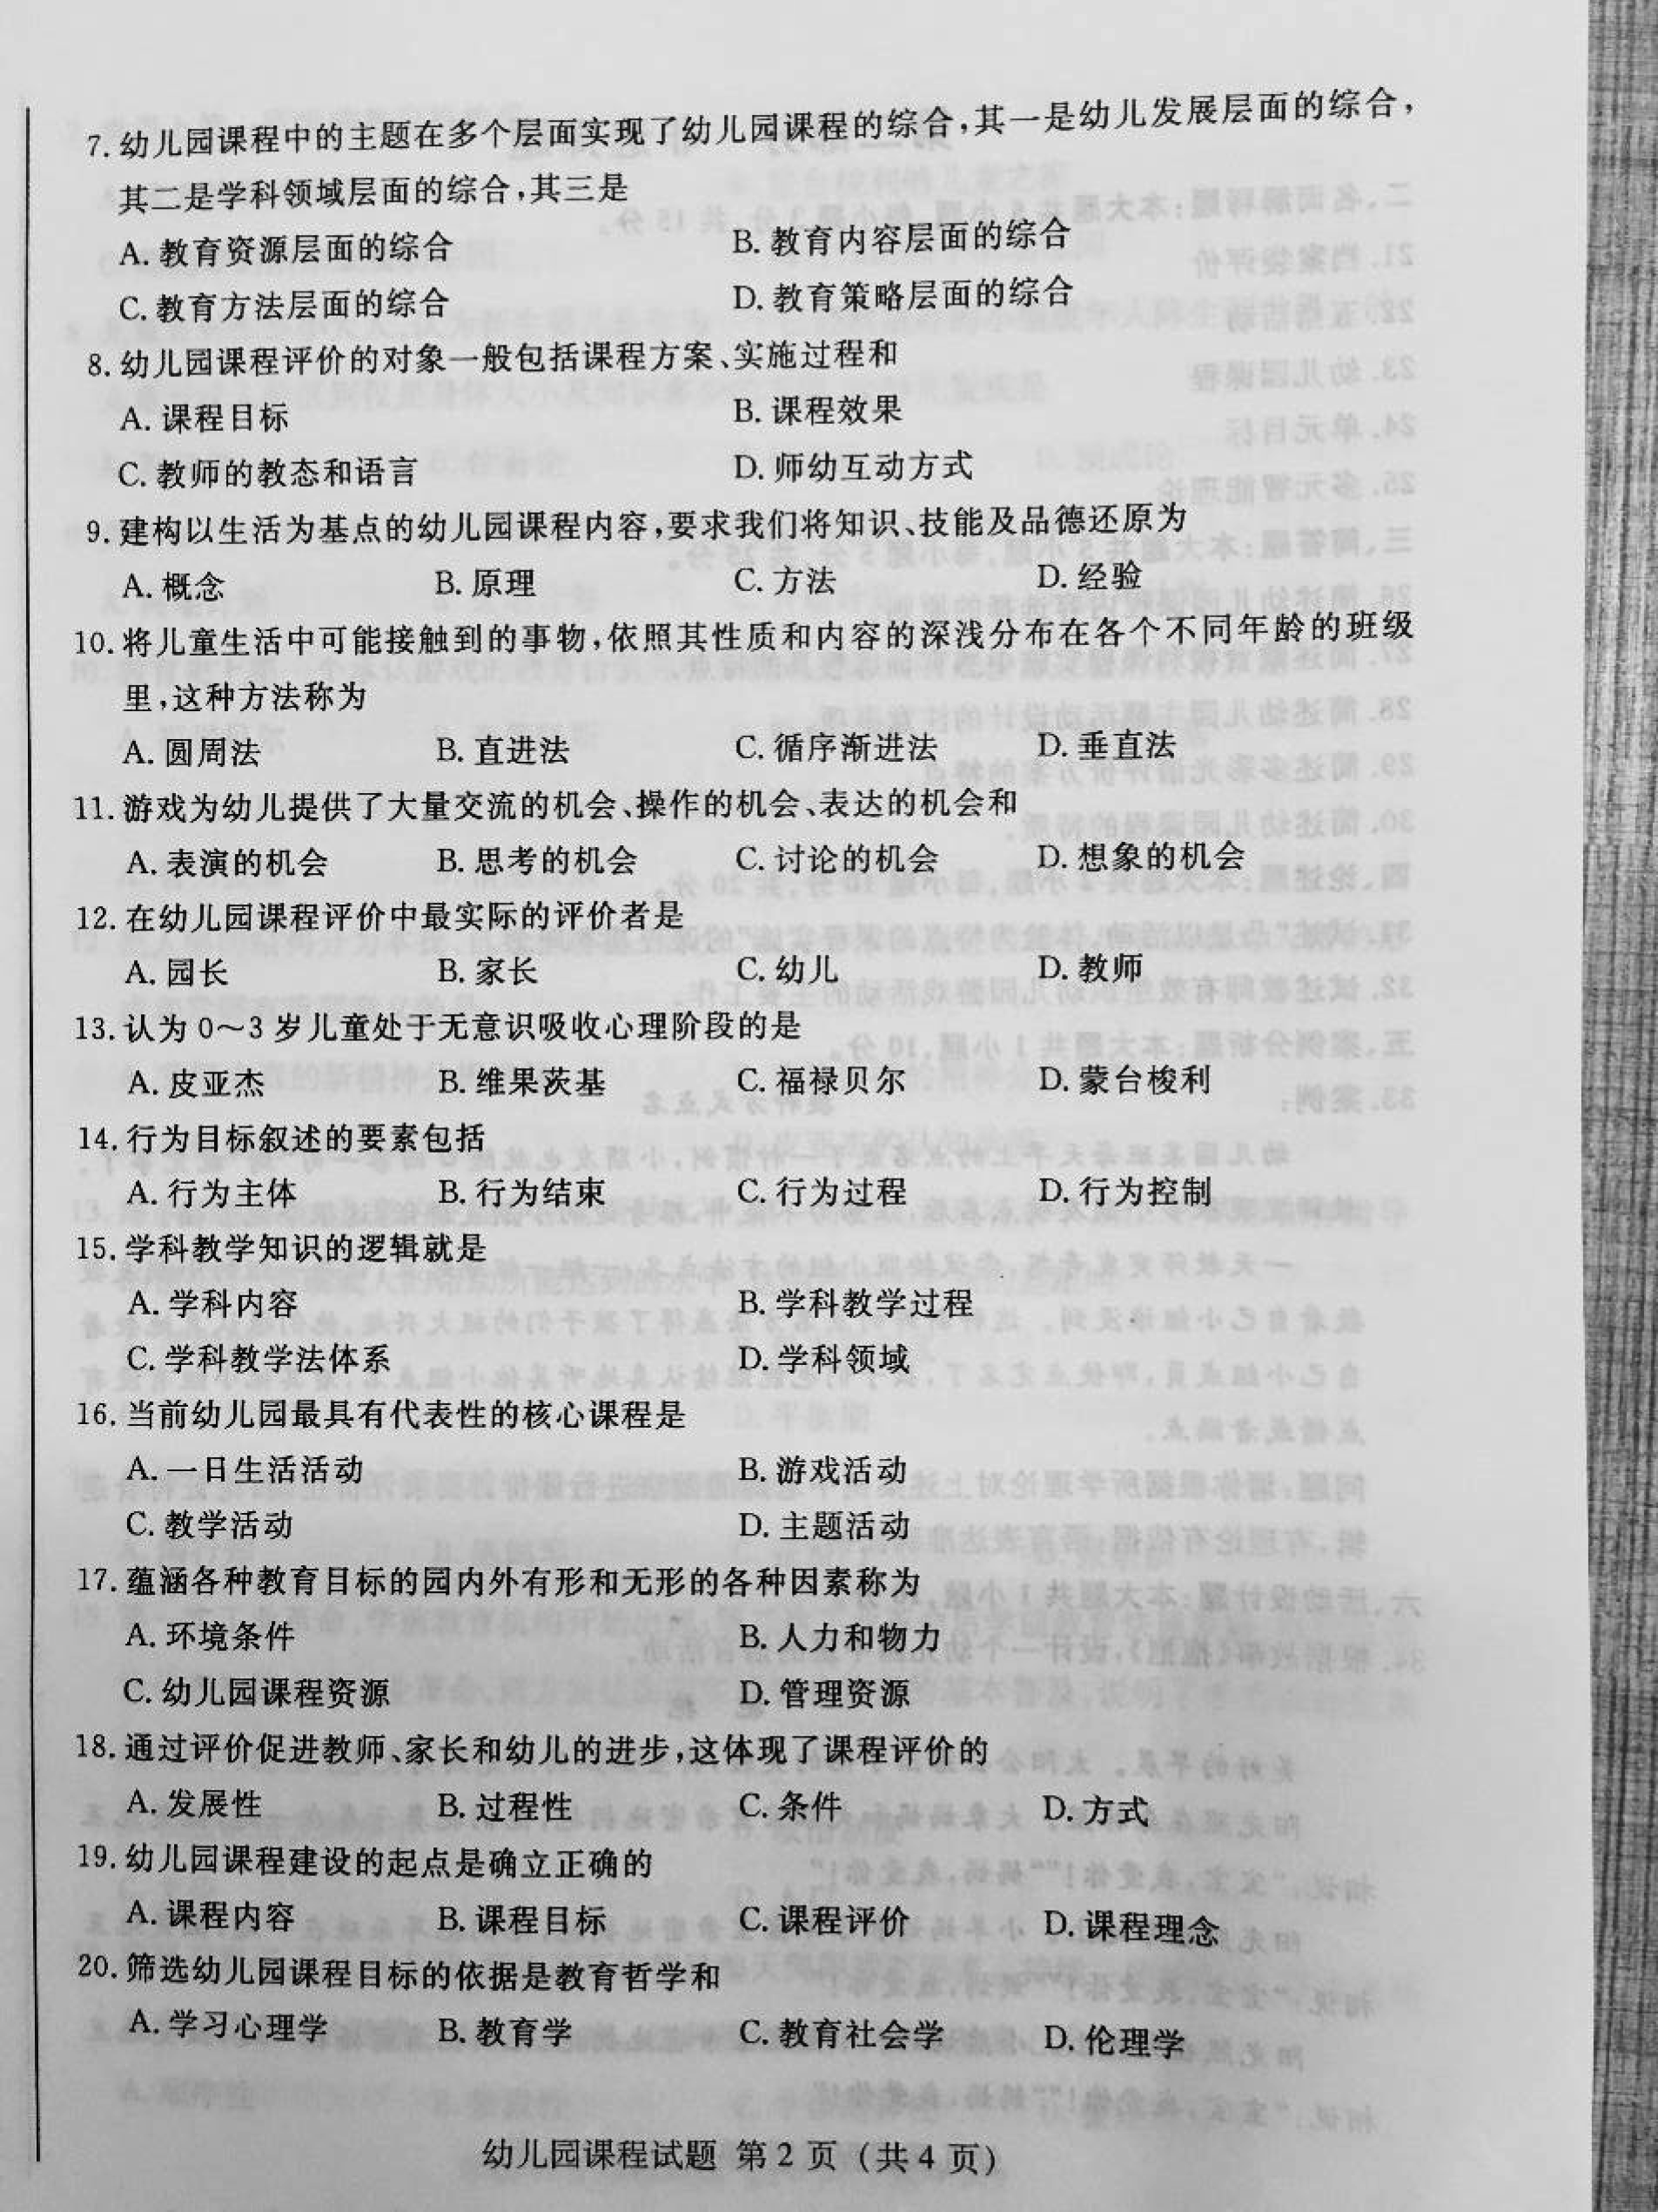 7. 幼儿园课程中的主题在多个层面实现了幼儿园课程的综合,其一是幼儿发展层面的综合,
其二是学科领域层面的综合,其三是
A. 教育资源层面的综合 B. 教育内容层面的综合
C. 教育方法层面的综合 D. 教育策略层面的综合
8. 幼儿园课程评价的对象一般包括课程方案、实施过程和
A. 课程目标 B. 课程效果
C. 教师的教态和语言 D. 师幼互动方式
9. 建构以生活为基点的幼儿园课程内容,要求我们将知识、技能及品德还原为
A. 概念 B. 原理 C. 方法 D. 经验
10. 将儿童生活中可能接触到的事物,依照其性质和内容的深浅分布在各个不同年龄的班级
里,这种方法称为
A. 圆周法 B. 直进法 C. 循序渐进法 D. 垂直法
11. 游戏为幼儿提供了大量交流的机会、操作的机会、表达的机会和
A. 表演的机会 B. 思考的机会 C. 讨论的机会 D. 想象的机会
12. 在幼儿园课程评价中最实际的评价者是
A. 园长 B. 家长 C. 幼儿 D. 教师
13. 认为 0～3 岁儿童处于无意识吸收心理阶段的是
A. 皮亚杰 B. 维果茨基 C. 福禄贝尔 D. 蒙台梭利
14. 行为目标叙述的要素包括
A. 行为主体 B. 行为结束 C. 行为过程 D. 行为控制
15. 学科教学知识的逻辑就是
A. 学科内容 B. 学科教学过程
C. 学科教学法体系 D. 学科领域
16. 当前幼儿园最具有代表性的核心课程是
A. 一日生活活动 B. 游戏活动
C. 教学活动 D. 主题活动
17. 蕴涵各种教育目标的园内外有形和无形的各种因素称为
A. 环境条件 B. 人力和物力
C. 幼儿园课程资源 D. 管理资源
18. 通过评价促进教师、家长和幼儿的进步,这体现了课程评价的
A. 发展性 B. 过程性 C. 条件 D. 方式
19. 幼儿园课程建设的起点是确立正确的
A. 课程内容 B. 课程目标 C. 课程评价 D. 课程理念
20. 筛选幼儿园课程目标的依据是教育哲学和
A. 学习心理学 B. 教育学 C. 教育社会学 D. 伦理学
幼儿园课程试题 第 2 页 (共 4 页)